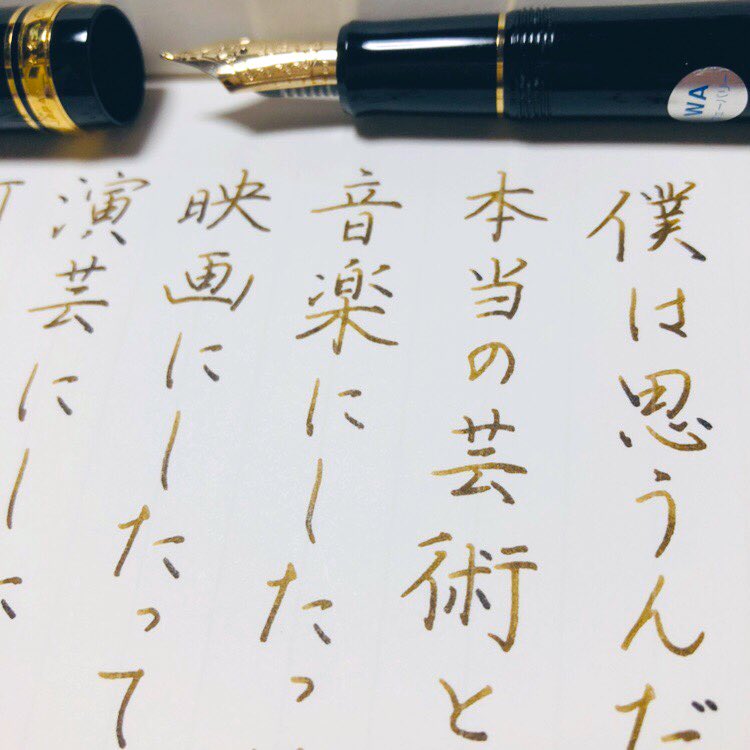 僕は思うんだ
本当の芸術と
音楽にしたっ
映画にしたって
演芸にした
WA